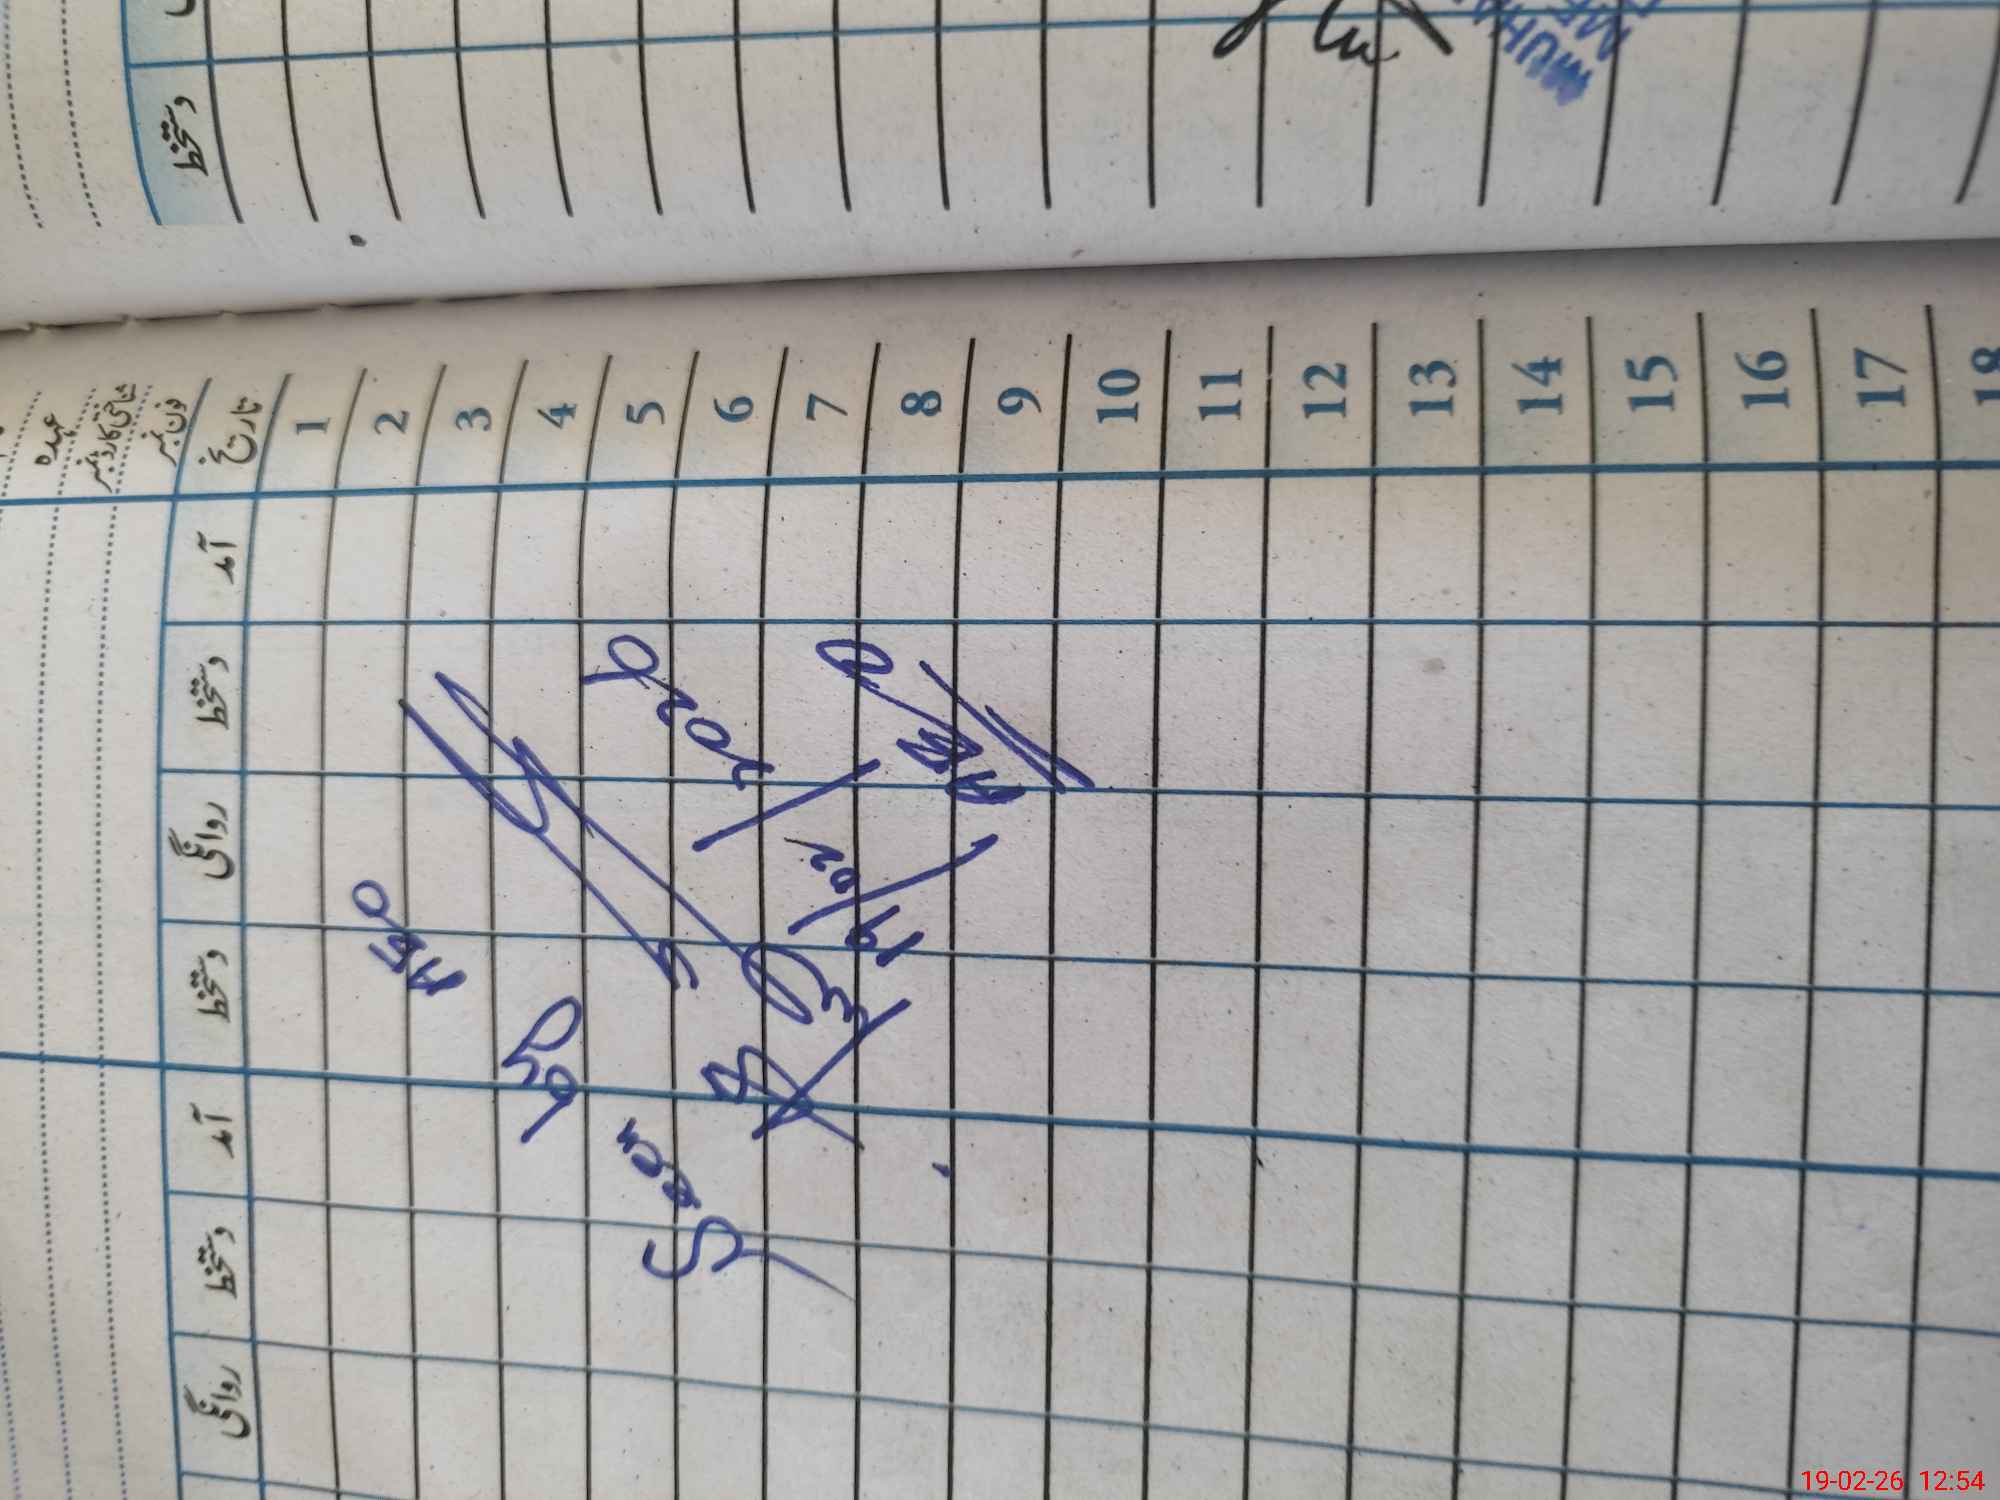 دستخط
MUHA
عہدہ
شناختی کارڈ نمبر
فون نمبر
تاریخ آمد دستخط روانگی دستخط آمد دستخط روانگی
1
2
3
4
5
6
7
8
9
10
11
12
13
14
15
16
17
18
Seen
by
AEO
19/02/2026
AEO
19-02-26 12:54